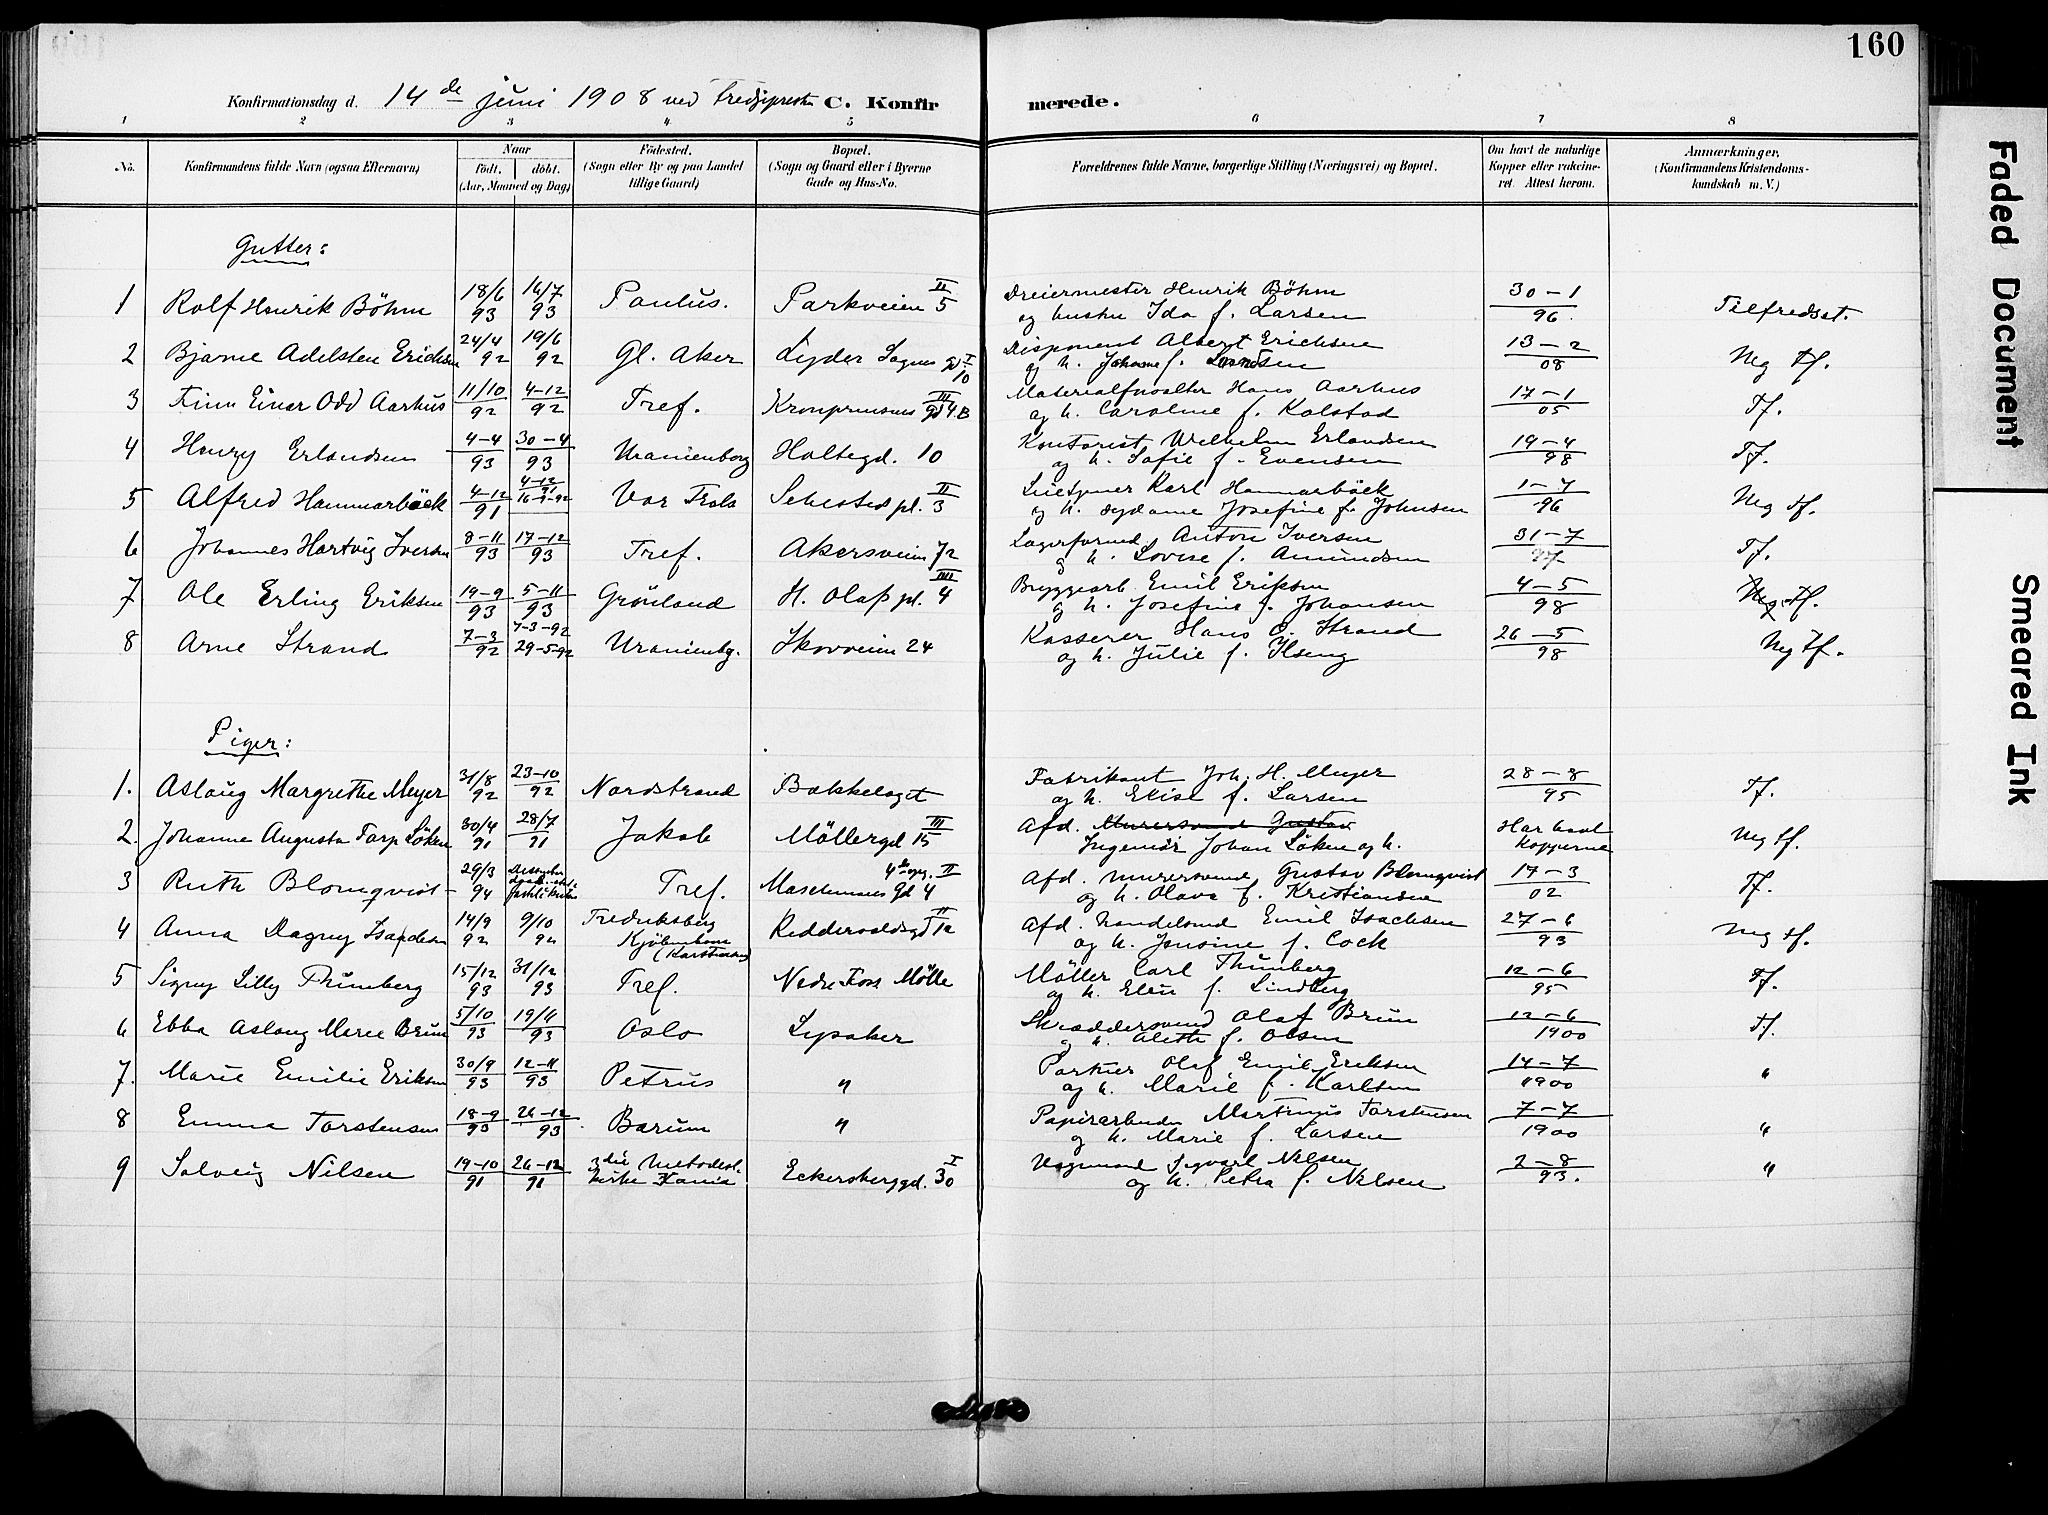 160
Konfirmationsdag d. 14 de juni 1908 ved tredjeprest C. Konfirmerede.
1 2 3 4 5 6 7 8
No. Konfirmandens fulde Navn (ogsaa Efternavn) Naar födt. döbt. (Aar, Maaned og Dag) Födested. (Sogn eller By og paa Landet tillige Gaard) Bopæl. (Sogn og Gaard eller i Byerne Gade og Hus-No. Forældrenes fulde Navne, borgerlige Stilling (Næringsvei) og Bopæl. Om havt de naturlige Kopper eller vakcineret. Attest herom. Anmærkninger. (Konfirmandens Kristendomskundskab m. V.)
Gutter:
1 Rolf Henrik Böhm 18/6 93 16/7 93 Paulus. Parkveien 5 II Dreiermester Henrik Böhm og hustru Ida f. Larsen 30-1 96 Tilfredsst.
2 Bjarne Adelsten Erichsen 24/4 92 19/6 92 Gl. Aker Lyder Sagens gd 10 I Disponent Albert Erichsen og h. Johanne f. 13-2 08 Meg tf.
3 Finn Einar Odd Aarhus 11/10 92 4-12 92 Tref. Kronprinsens gd 4B III Materialforvalter Hans Aarhus og h. Caroline f. Kolstad 17-1 05 Tf.
4 Henry Erlandsen 4-4 93 30-4 93 Uranienborg Holtegd. 10 Kontorist Wilhelm Erlandsen og h. Sofie f. Evensen 19-4 98 Tf.
5 Alfred Hammarbäck 4-12 91 4-12 91 16-9-92 Vor Frels Sehesteds pl. 3 II Karl Hammarbäck og h. Josefine f. Johnsen 1-7 96 Meg tf.
6 Johannes Hartvig Iversen 8-11 93 17-12 93 Tref. Akersveien 72 Lagerformd. Anton Iversen og h. Lovise f. Amundsen 31-7 97 Tf.
7 Ole Erling Eriksen 19-9 93 5-11 93 Grönland H. Olafs pl. 4 IIII Bryggearb. Emil Eriksen og h. Josefine f. Johansen 4-5 98 Meg. tf.
8 Arne Strand 7-3 92 7-3-92 29-5-92 Uranienbg. Skovveien 24 Kasserer Hans O. Strand og h. Julie f. Ilseng 26-5 98 Meg tf.
Piger:
1. Aslaug Margrethe Meyer 31/8 92 23-10 92 Nordstrand Bækkelaget Fabrikant Joh. H. Meyer og h. Elise f. Larsen 28-8 95 Tf.
2. Johanne Augusta Tarp Löken 30/4 91 28/7 91 Jakob Möllergd 15 III Afd. Murersvend Gustav Ingeniör Johan Löken og h. Har havt kopperne Meg tf.
3 Ruth Blomqvist 29/3 94 Tref. Maschinens Gd 4 II Afd. murersvend Gustav Blomqvist og h. Olava f. Kristiansen 17-3 02 Tf.
4 Anna Dagny Isachsen 14/9 92 9/10 92 Fredriksberg Kjöbenhavn Reddervoldsgd 12 II Afd. handelsmd Emil Isachsen og h. Jensine f. Cock 27-6 93 Meg tf.
5 Signy Lilly Thunberg 15/12 93 31/12 93 Tref. Nedre Foss Mölle Möller Carl Thunberg og h. Elen f. Lindberg 12-6 95 Tf.
6 Ebba Aslaug Marie Brun 5/10 93 19/11 93 Oslo Lysaker Skræddersvend Olaf Brun og h. Aleth f. Olsen 12-6 1900 Tf.
7. Marie Emilie Eriksen 30/9 93 12-11 93 Petrus " Portier Olaf Emil Eriksen og h. Marie f. Karlsen 14-7 1900 "
8 Emma Torstensen 18-9 93 26-12 93. Bærum " Papirarbeider Martinus Torstensen og h. Marie f. Larsen 7-7 1900 "
9 Solveig Nilsen 19-10 91 26-12 91 3die Metodist-kirke Kania Eckersberggd. 30 I Vognmand Sigvart Nilsen og h. Petra f. Nilsen 2-8 93. "
Faded Document
Smeared Ink